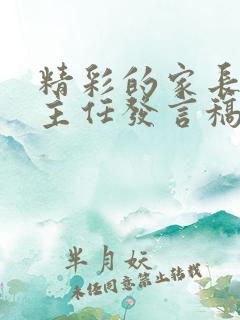 精彩的家長
主任發言稿
半月妖
未经同意禁止转载